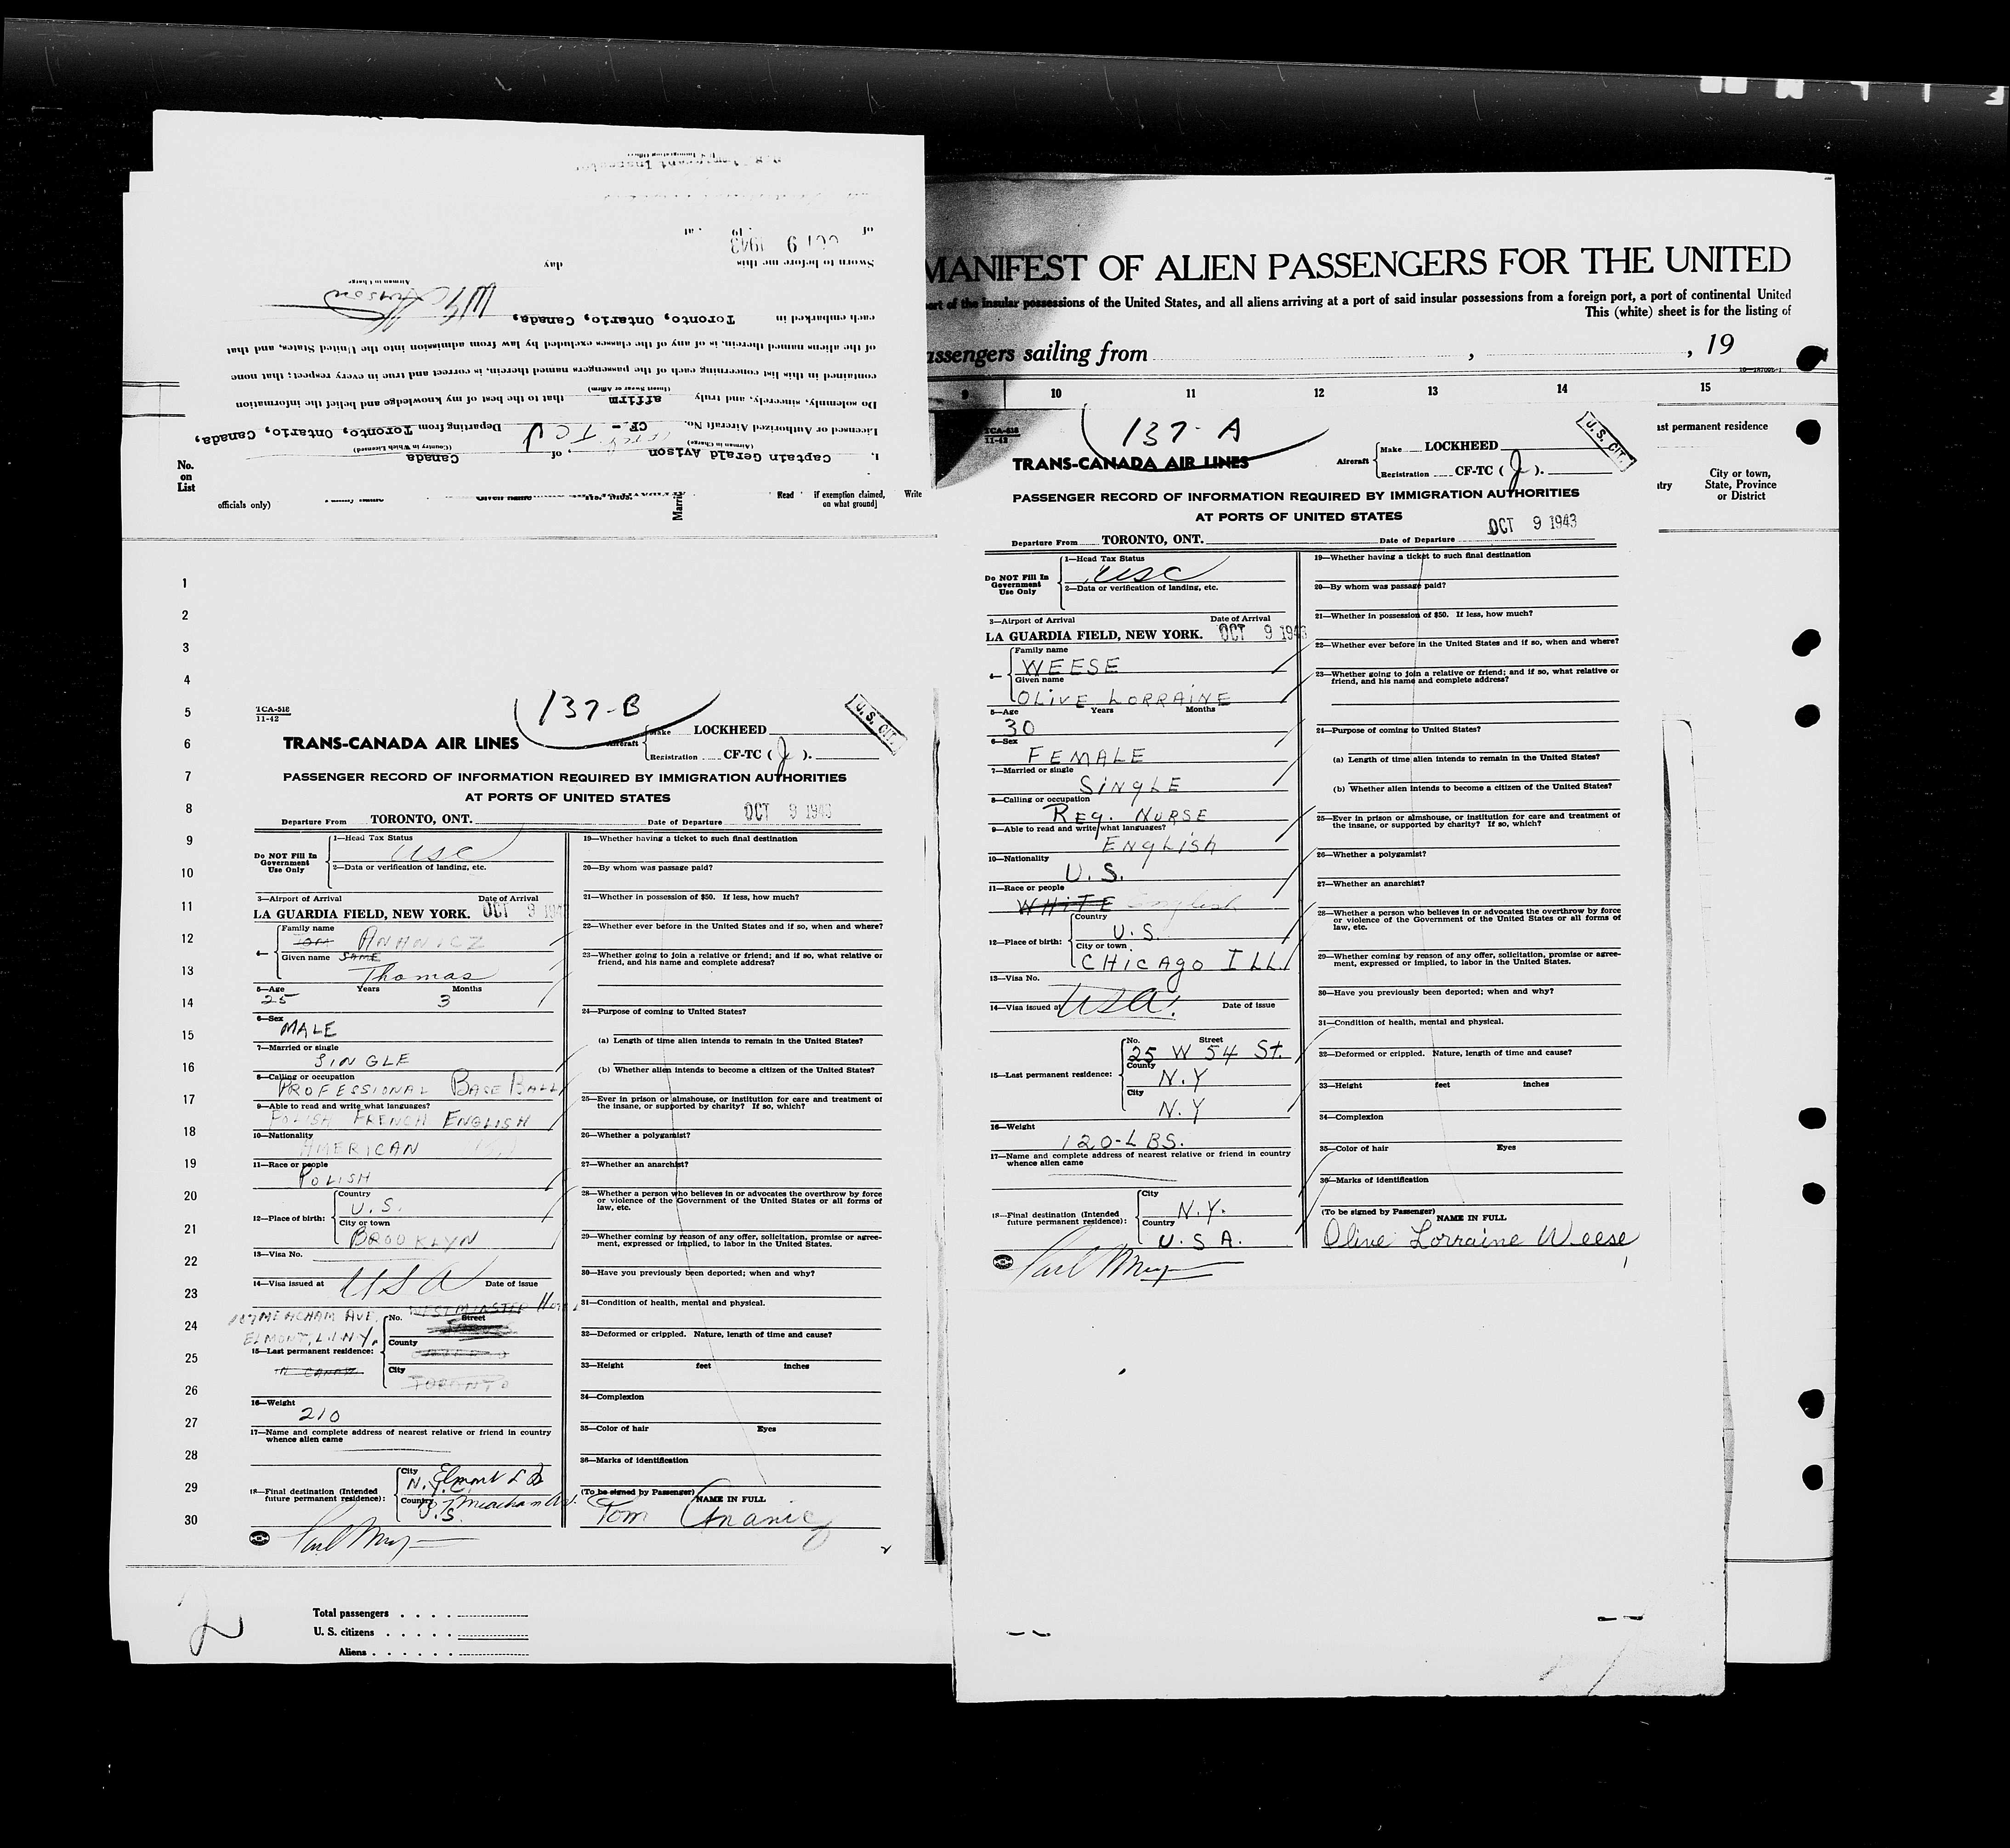 MANIFEST OF ALIEN PASSENGERS FOR THE UNITED
port of the insular possessions of the United States, and all aliens arriving at a port of said insular possessions from a foreign port, a port of continental United
This (white) sheet is for the listing of
assengers sailing from , , 19
9 10 11 12 13 14 15
ast permanent residence
try
City or town,
State, Province
or District
I, Captain Gerald Avison, of Canada
(Airman in Charge) (Country in Which Licensed)
Licensed or Authorized Aircraft No. CF-TCJ Departing from Toronto, Ontario, Canada,
Do solemnly, sincerely, and truly affirm that to the best of my knowledge and belief the information
(Insert Swear or Affirm)
contained in this list concerning each of the passengers named therein, is correct and true in every respect; that none
of the aliens named therein, is of any of the classes excluded by law from admission into the United States, and that
each embarked in Toronto, Ontario, Canada,
Airman in Charge
Sworn to before me this day
of OCT 9 1943 19 at
No.
on
List
officials only)
Read
if exemption claimed,
on what ground]
Write
1
2
3
4
5
6
7
8
9
10
11
12
13
14
15
16
17
18
19
20
21
22
23
24
25
26
27
28
29
30
TCA-518
11-42
137-B
U.S. CIT.
TRANS-CANADA AIR LINES
Aircraft
Make LOCKHEED
Registration CF-TC (J).
PASSENGER RECORD OF INFORMATION REQUIRED BY IMMIGRATION AUTHORITIES
AT PORTS OF UNITED STATES
Departure From TORONTO, ONT. Date of Departure OCT 9 1943
Do NOT Fill In
Government
Use Only
1—Head Tax Status
USC
2—Data or verification of landing, etc.
3—Airport of Arrival Date of Arrival
LA GUARDIA FIELD, NEW YORK. OCT 9 194
4—
Family name
TOM ANANICZ
Given name SAME
Thomas
5—Age Years Months
25 3
6—Sex
MALE
7—Married or single
SINGLE
8—Calling or occupation
PROFESSIONAL BASE BALL
9—Able to read and write what languages?
POLISH FRENCH ENGLISH
10—Nationality
AMERICAN
11—Race or people
POLISH
12—Place of birth:
Country
U.S.
City or town
BROOKLYN
13—Visa No.
14—Visa issued at USA Date of issue
107 MEACHAM AVE.
ELMONT, L.I. N.Y.
WESTMINSTER Hotel
15—Last permanent residence:
IN CANADA
No. Street
County
City
TORONTO
16—Weight
210
17—Name and complete address of nearest relative or friend in country
whence alien came
18—Final destination (Intended
future permanent residence):
City Elmont L I
N.Y.C.
Country 107 Meacham Av.
U.S.
19—Whether having a ticket to such final destination
20—By whom was passage paid?
21—Whether in possession of $50. If less, how much?
22—Whether ever before in the United States and if so, when and where?
23—Whether going to join a relative or friend; and if so, what relative or
friend, and his name and complete address?
24—Purpose of coming to United States?
(a) Length of time alien intends to remain in the United States?
(b) Whether alien intends to become a citizen of the United States?
25—Ever in prison or almshouse, or institution for care and treatment of
the insane, or supported by charity? If so, which?
26—Whether a polygamist?
27—Whether an anarchist?
28—Whether a person who believes in or advocates the overthrow by force
or violence of the Government of the United States or all forms of
law, etc.
29—Whether coming by reason of any offer, solicitation, promise or agree-
ment, expressed or implied, to labor in the United States.
30—Have you previously been deported; when and why?
31—Condition of health, mental and physical.
32—Deformed or crippled. Nature, length of time and cause?
33—Height feet inches
34—Complexion
35—Color of hair Eyes
36—Marks of identification
(To be signed by Passenger)
NAME IN FULL
Tom Ananicz
2
Total passengers
U. S. citizens
Aliens
TCA-518
11-42
137-A
U.S. CIT.
TRANS-CANADA AIR LINES
Aircraft
Make LOCKHEED
Registration CF-TC (J).
PASSENGER RECORD OF INFORMATION REQUIRED BY IMMIGRATION AUTHORITIES
AT PORTS OF UNITED STATES
Departure From TORONTO, ONT. Date of Departure OCT 9 1943
Do NOT Fill In
Government
Use Only
1—Head Tax Status
USC
2—Data or verification of landing, etc.
3—Airport of Arrival Date of Arrival
LA GUARDIA FIELD, NEW YORK. OCT 9 1943
4—
Family name
WEESE
Given name
OLIVE LORRAINE
5—Age Years Months
30
6—Sex
FEMALE
7—Married or single
SINGLE
8—Calling or occupation
REG. NURSE
9—Able to read and write what languages?
ENGLISH
10—Nationality
U.S.
11—Race or people
WHITE English
12—Place of birth:
Country
U.S.
City or town
CHICAGO ILL.
13—Visa No.
14—Visa issued at USA Date of issue
15—Last permanent residence:
No. Street
25 W 54 St.
County
N.Y
City
N.Y
16—Weight
120-LBS.
17—Name and complete address of nearest relative or friend in country
whence alien came
18—Final destination (Intended
future permanent residence):
City
N.Y.
Country
U.S.A.
19—Whether having a ticket to such final destination
20—By whom was passage paid?
21—Whether in possession of $50. If less, how much?
22—Whether ever before in the United States and if so, when and where?
23—Whether going to join a relative or friend; and if so, what relative or
friend, and his name and complete address?
24—Purpose of coming to United States?
(a) Length of time alien intends to remain in the United States?
(b) Whether alien intends to become a citizen of the United States?
25—Ever in prison or almshouse, or institution for care and treatment of
the insane, or supported by charity? If so, which?
26—Whether a polygamist?
27—Whether an anarchist?
28—Whether a person who believes in or advocates the overthrow by force
or violence of the Government of the United States or all forms of
law, etc.
29—Whether coming by reason of any offer, solicitation, promise or agree-
ment, expressed or implied, to labor in the United States.
30—Have you previously been deported; when and why?
31—Condition of health, mental and physical.
32—Deformed or crippled. Nature, length of time and cause?
33—Height feet inches
34—Complexion
35—Color of hair Eyes
36—Marks of identification
(To be signed by Passenger)
NAME IN FULL
Olive Lorraine Weese